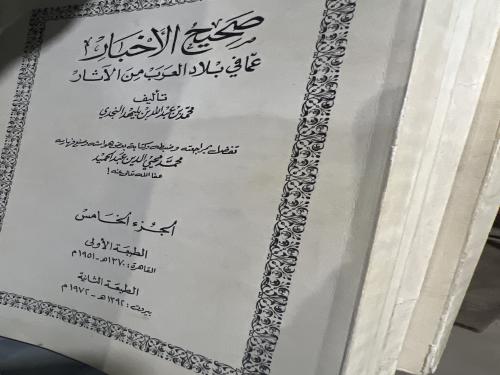 صحيح الأخبار
عما في بلاد العرب من الآثار
تأليف
محمد بن عبد الله بن بليهد النجدي
تفضل بمراجعته وضبطه وكتابة بعض هوامشه
محمد محيي الدين عبد الحميد
عفا الله تعالى عنه!
الجزء الخامس
الطبعة الأولى
القاهرة: ١٣٧٠هـ - ١٩٥١م
الطبعة الثانية
بيروت: ١٣٩٢هـ - ١٩٧٢م